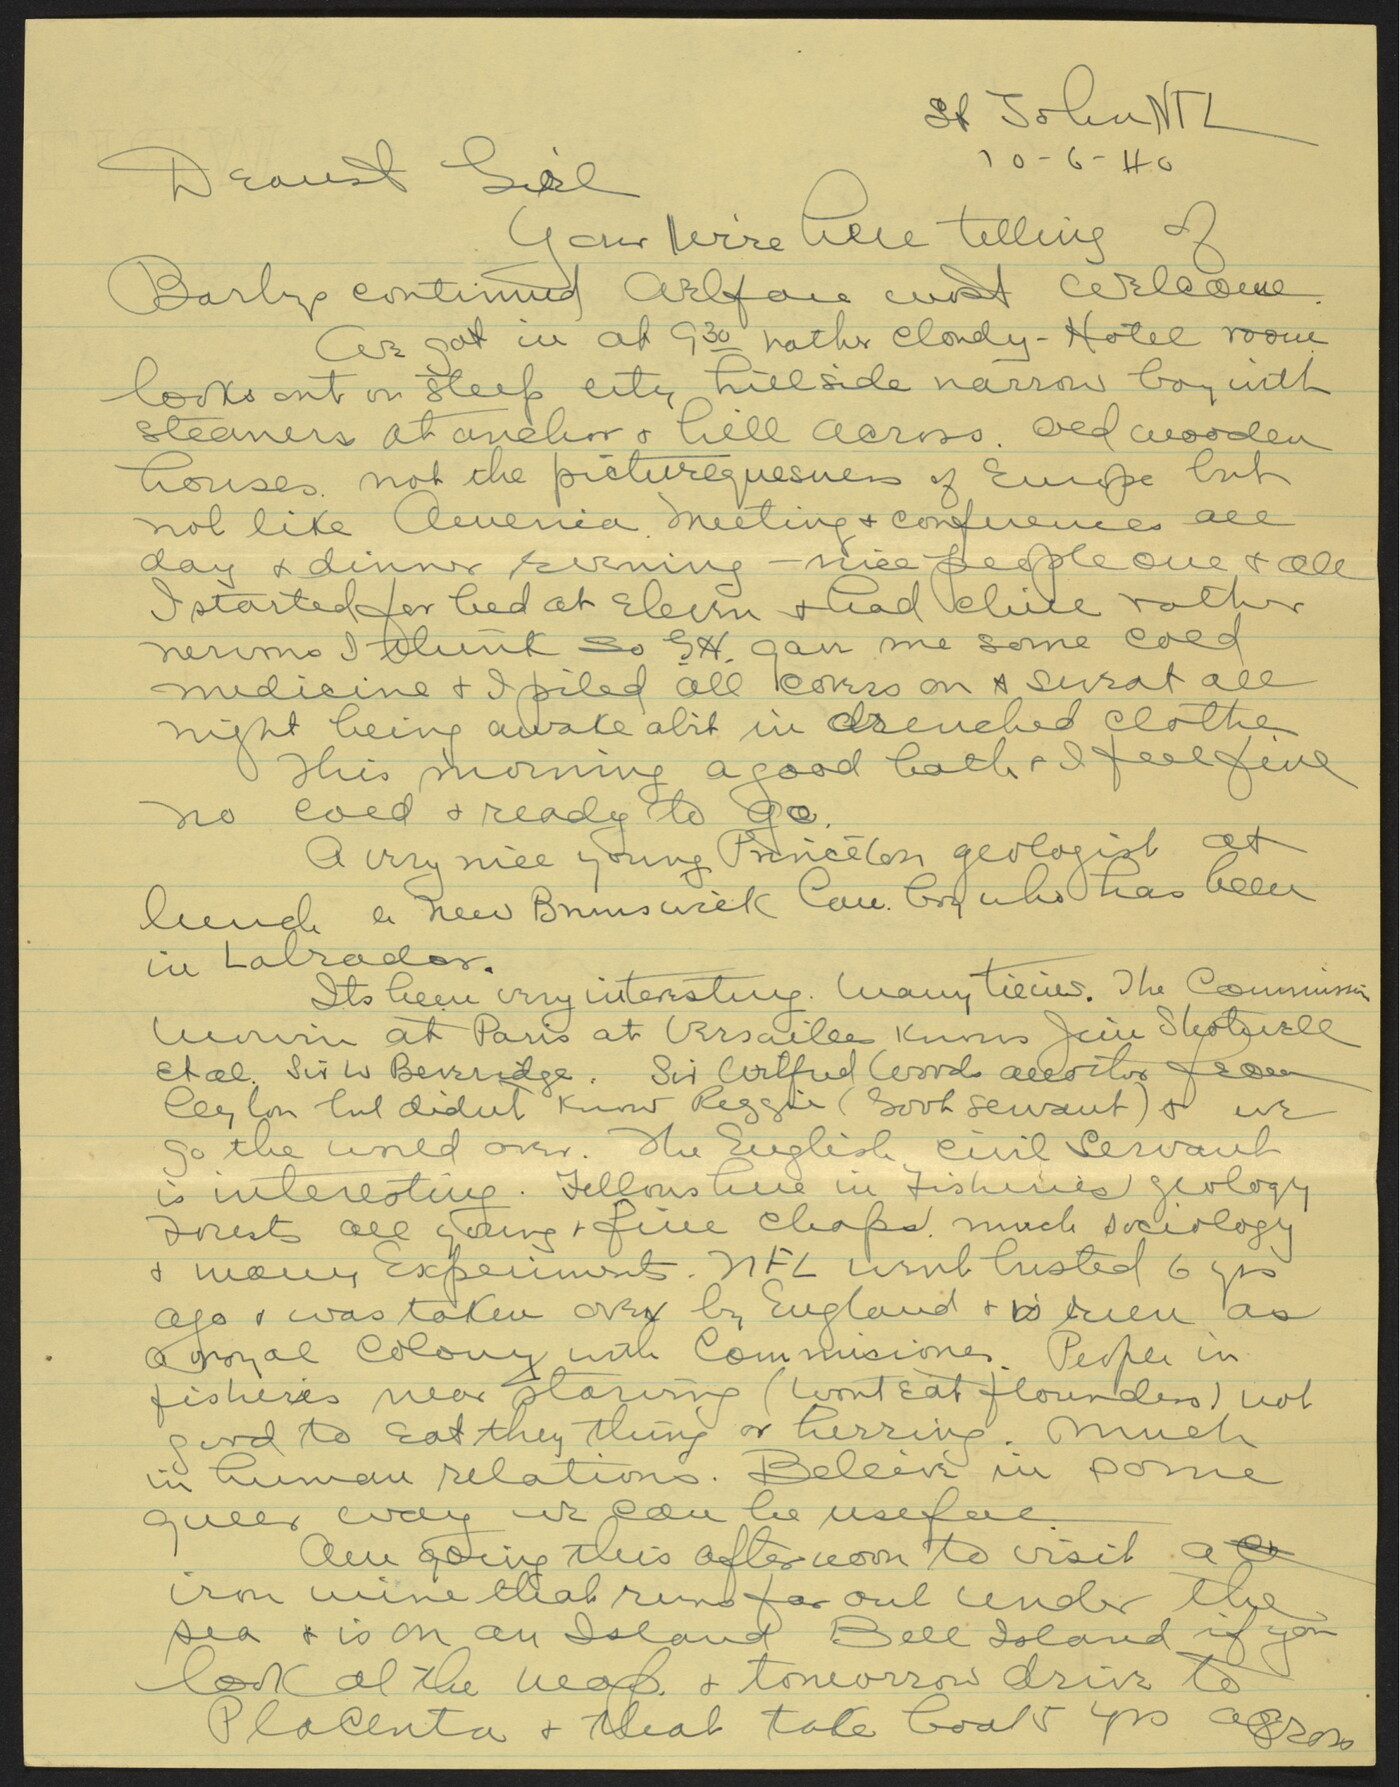 St John NFL
10-6-40
Dearest Girl
Your wire here telling of
Barbys continued welfare most welcome.
We got in at 9 30 rather cloudy - Hotel room
looks out on steep city hillside narrow bay with
steamers at anchor & hill across. Old wooden
houses. not the picturequesness of Europe but
not like America. Meeting & conferences all
day & dinner evening - nice people one & all
I started for bed at Eleven & had chill rather
nervous I think so GH. gave me some cold
medicine & I piled all covers on & sweat all
night being awake abit in drenched clothe
This morning a good bath & I feel fine
no cold & ready to go.
A very nice young Princeton geologist at
lunch a New Brunswick Can. boy who has been
in Labrador.
Its been very interesting. Many ties. The Commission
at Paris at Versailles knows Jim Shotwell
et al. Sir W Beveridge. Sir Wilfred Woods another from
Ceylon but didnt know Reggie (Govt servant) & we
go the world over. The English civil servant
is interesting. Fellows here in Fisheries geology
Forests all young & fine chaps. much sociology
& many Experiments. NFL went busted 6 yrs
ago & was taken over by England & is run as
a royal Colony with Commisiones. People in
fisheries near starving (wont eat flounders) not
good to eat they think or herring. Much
in human relations. Beleive in some
queer way we can be useful
Am going this afternoon to visit a
iron mine that runs far out under the
sea & is on an Island Bell Island if you
look at the map. & tomorrow drive to
Placenta & that take boat 5 hrs across